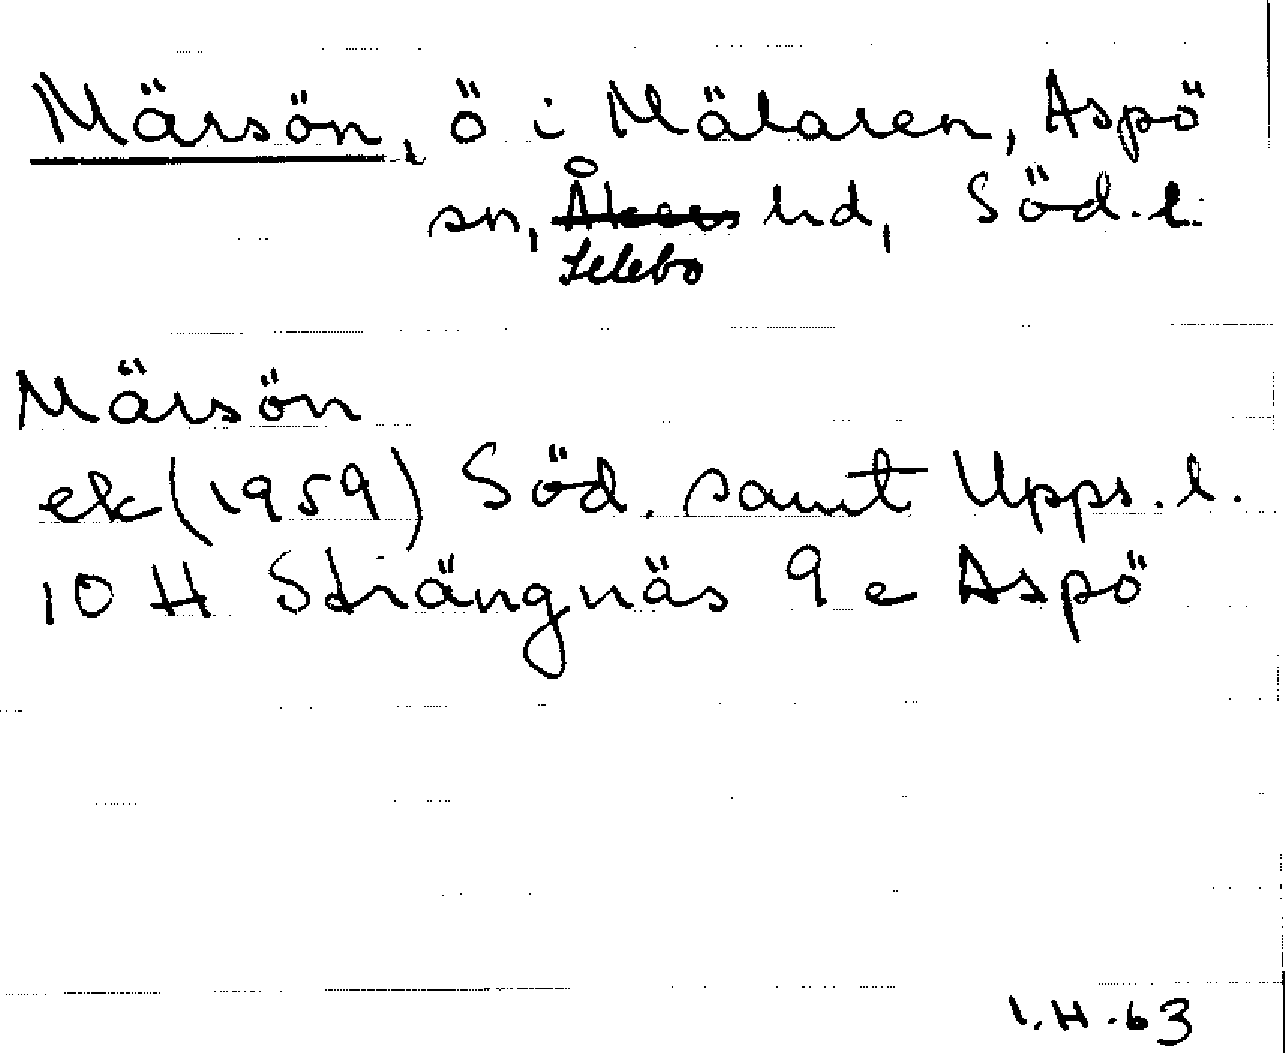 Märsön, ö i Mälaren, Aspö
sn, Åkers hd, Söd. l.
Selebo
Märsön
ek (1959) Söd. samt Upps. l.
10 H Strängnäs 9 e Aspö
I.H. 63